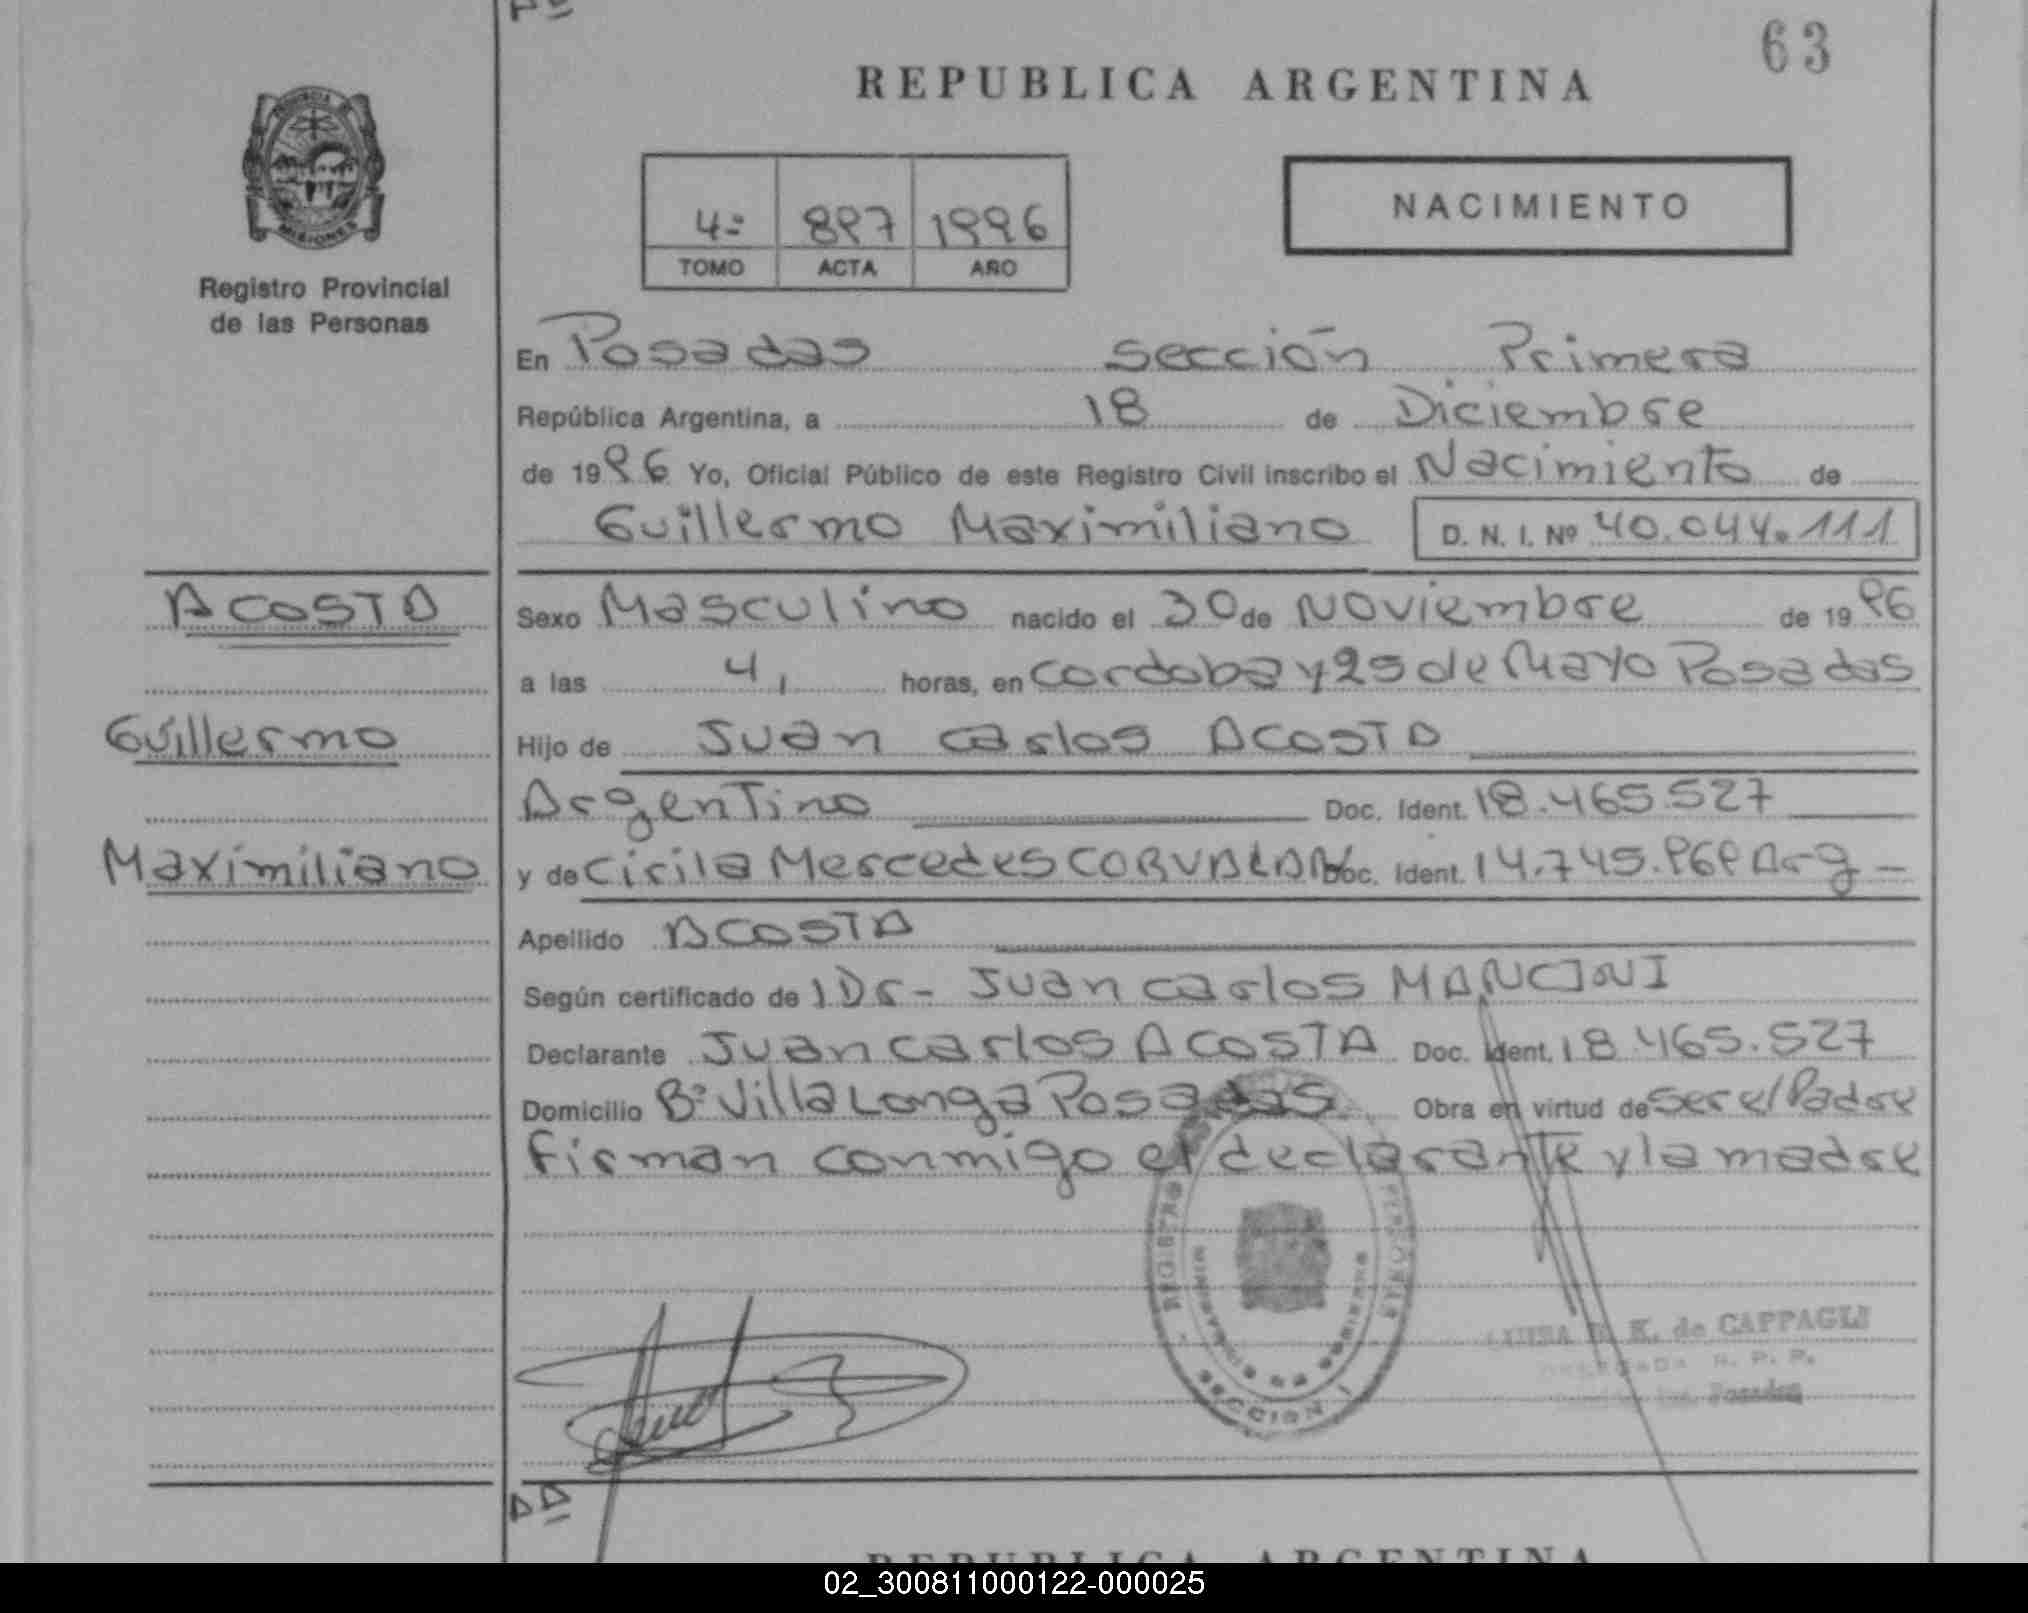 63
REPUBLICA ARGENTINA
PROVINCIA DE
MISIONES
Registro Provincial
de las Personas
4º 897 1996
TOMO ACTA AÑO
NACIMIENTO
En Posadas sección Primera
República Argentina, a 18 de Diciembre
de 1996 Yo, Oficial Público de este Registro Civil inscribo el Nacimiento de
Guillermo Maximiliano D. N. I. Nº 40.044.111
ACOSTA
Sexo Masculino nacido el 30 de Noviembre de 1996
a las 4, horas, en Cordoba y 25 de Mayo Posadas
Guillermo
Hijo de Juan Carlos ACOSTA
Argentino Doc. Ident. 18.465.527
Maximiliano
y de Cirila Mercedes CORVALAN Doc. Ident. 14.745.969 Arg
Apellido ACOSTA
Según certificado de Dr- Juan Carlos MANCINI
Declarante Juan Carlos ACOSTA Doc. Ident. 18.465.527
Domicilio Bº Villa Longa Posadas Obra en virtud de ser el Padre
Firman conmigo el declarante y la madre
REGISTRO PERSONAS
SECCION 1
K. de CAPPAGLI
R. P. P.
Posadas
REPUBLICA ARGENTINA
02_300811000122-000025